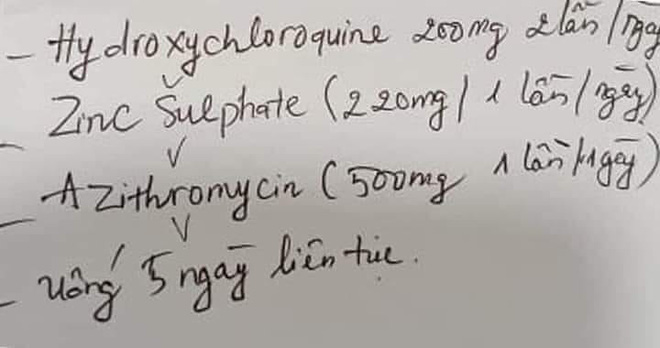 - Hydroxychloroquine 200mg 2 lần/ngày
- Zinc Sulphate (220mg/ 1 lần/ngày)
- Azithromycin (500mg 1 lần/ngày)
- uống 5 ngày liên tục.